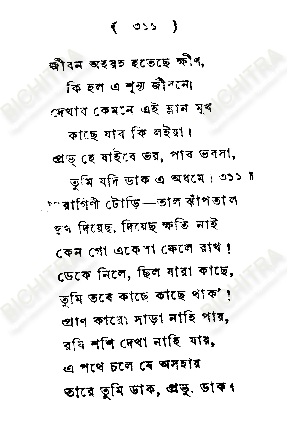 ( ৩১১ )
জীবন অহরহ হতেছে ক্ষীণ,
কি হল এ শূন্য জীবনে!
দেখাব কেমনে এই ম্লান মুখ
কাছে যাব কি লইয়া!
প্রভু হে যাইবে ভয়, পাব ভরসা,
তুমি যদি ডাক এ অধমে। ৩১১ ॥
রাগিণী টোড়ি—তাল ঝাঁপতাল
দুখ দিয়েছ, দিয়েছ ক্ষতি নাই
কেন গো একেলা ফেলে রাখ!
ডেকে নিলে, ছিল যারা কাছে,
তুমি তবে কাছে কাছে থাক'!
প্রাণ কারো সাড়া নাহি পায়,
রবি শশি দেখা নাহি যায়,
এ পথে চলে যে অসহায়
তারে তুমি ডাক, প্রভু, ডাক।
BICHITRA
BICHITRA
BICHITRA
BICHITRA